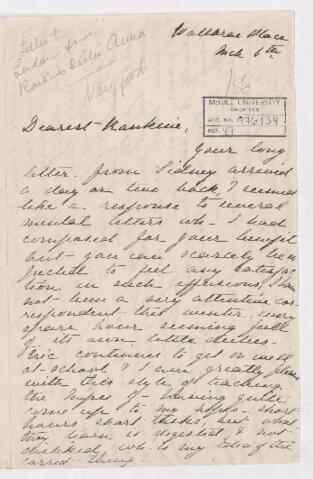 Letter to
London from
Rankine's sister Anna
Very good
Wallbrae Place
Mch 6th
McGILL UNIVERSITY
ARCHIVES
ACC. NO. 976/34
REF. 47
Dearest Rankine,
Your long
letter from Sidney arrived
a day or two back, & seemed
like a response to several
mental letters wh. I had
composed for your benefit
but you can scarcely be ex
pected to feel any satisfac
tion in such effusions. I have
not been a very attentive cor
respondent this winter, every
spare hour seeming full
of its own little duties.
Eric continues to get on well
at school & I am greatly pleased
with this style of teaching
the boys quite
come up to my hopes - short
hours, short tasks, but what
they learn is digested & not
disliked, wh. is my idea of the
correct thing